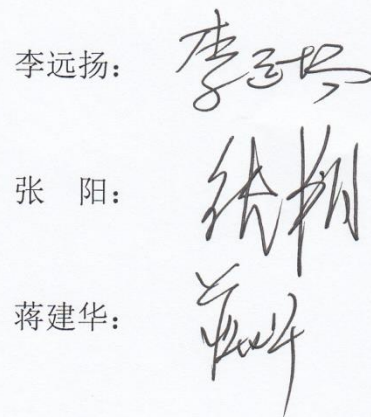 李远扬：李远扬
张　阳：
蒋建华：蒋建华